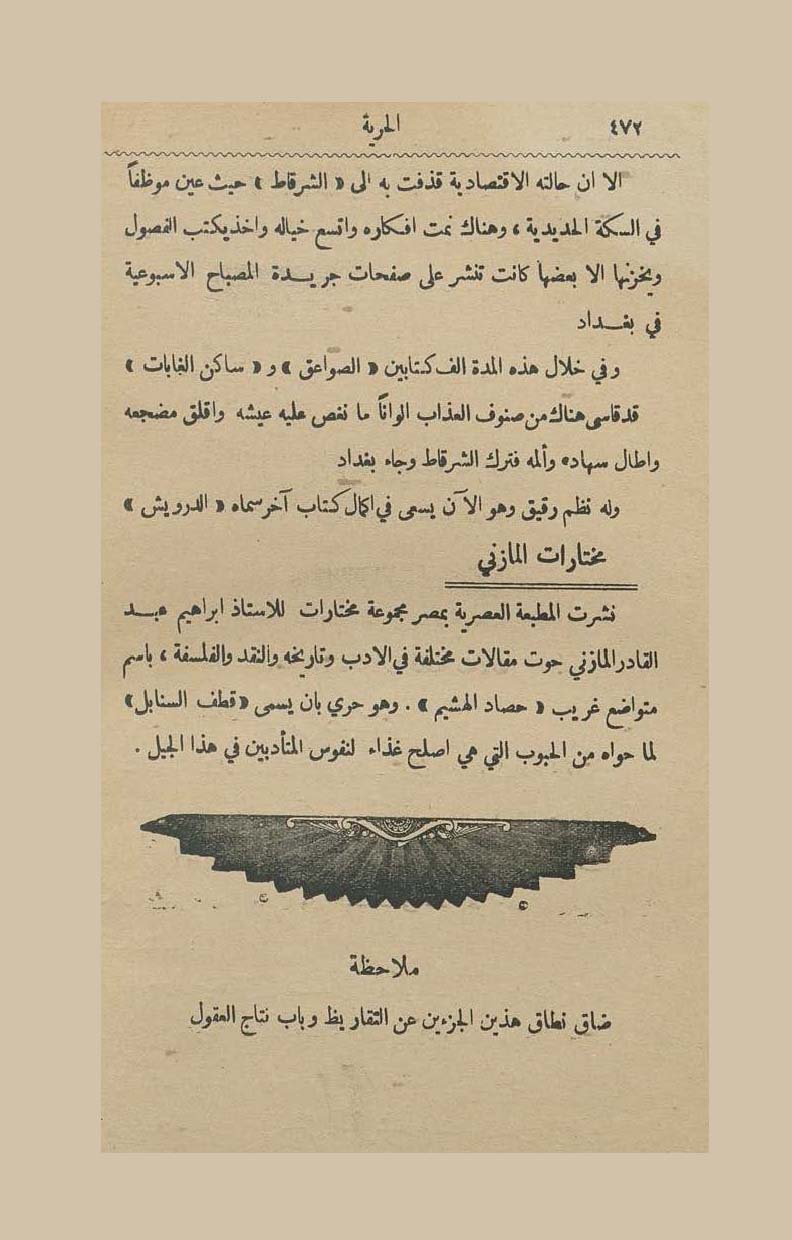 ٤٧٢
الحرية
الا ان حالته الاقتصادية قذفت به الى « الشرقاط » حيث عين موظفاً
في السكة الحديدية ، وهناك نمت افكاره واتسع خياله واخذ يكتب الفصول
ويخزنها الا بعضها كانت تنشر على صفحات جريــدة المصباح الاسبوعية
في بغــداد
وفي خلال هذه المدة الف كتابين « الصواعق » و « ساكن الغابات »
قد قاسى هناك من صنوف العذاب الواناً ما نغص عليه عيشه واقلق مضجعه
واطال سهاده وألمه فترك الشرقاط وجاء بغداد
وله نظم رقيق وهو الآن يسعى في اكمال كتاب آخر سماه « الدرويش »
مختارات المازني
نشرت المطبعة العصرية بمصر مجموعة مختارات للاستاذ ابراهيم عبــد
القادر المازني حوت مقالات مختلفة في الادب وتاريخه والنقد والفلسفة ، باسم
متواضع غريب « حصاد الهشيم » . وهو حري بان يسمى « قطف السنابل »
لما حواه من الحبوب التي هي اصلح غذاء لنفوس المتأدبين في هذا الجيل .
ملاحظة
ضاق نطاق هذين الجزءين عن التقاريظ وباب نتاج العقول